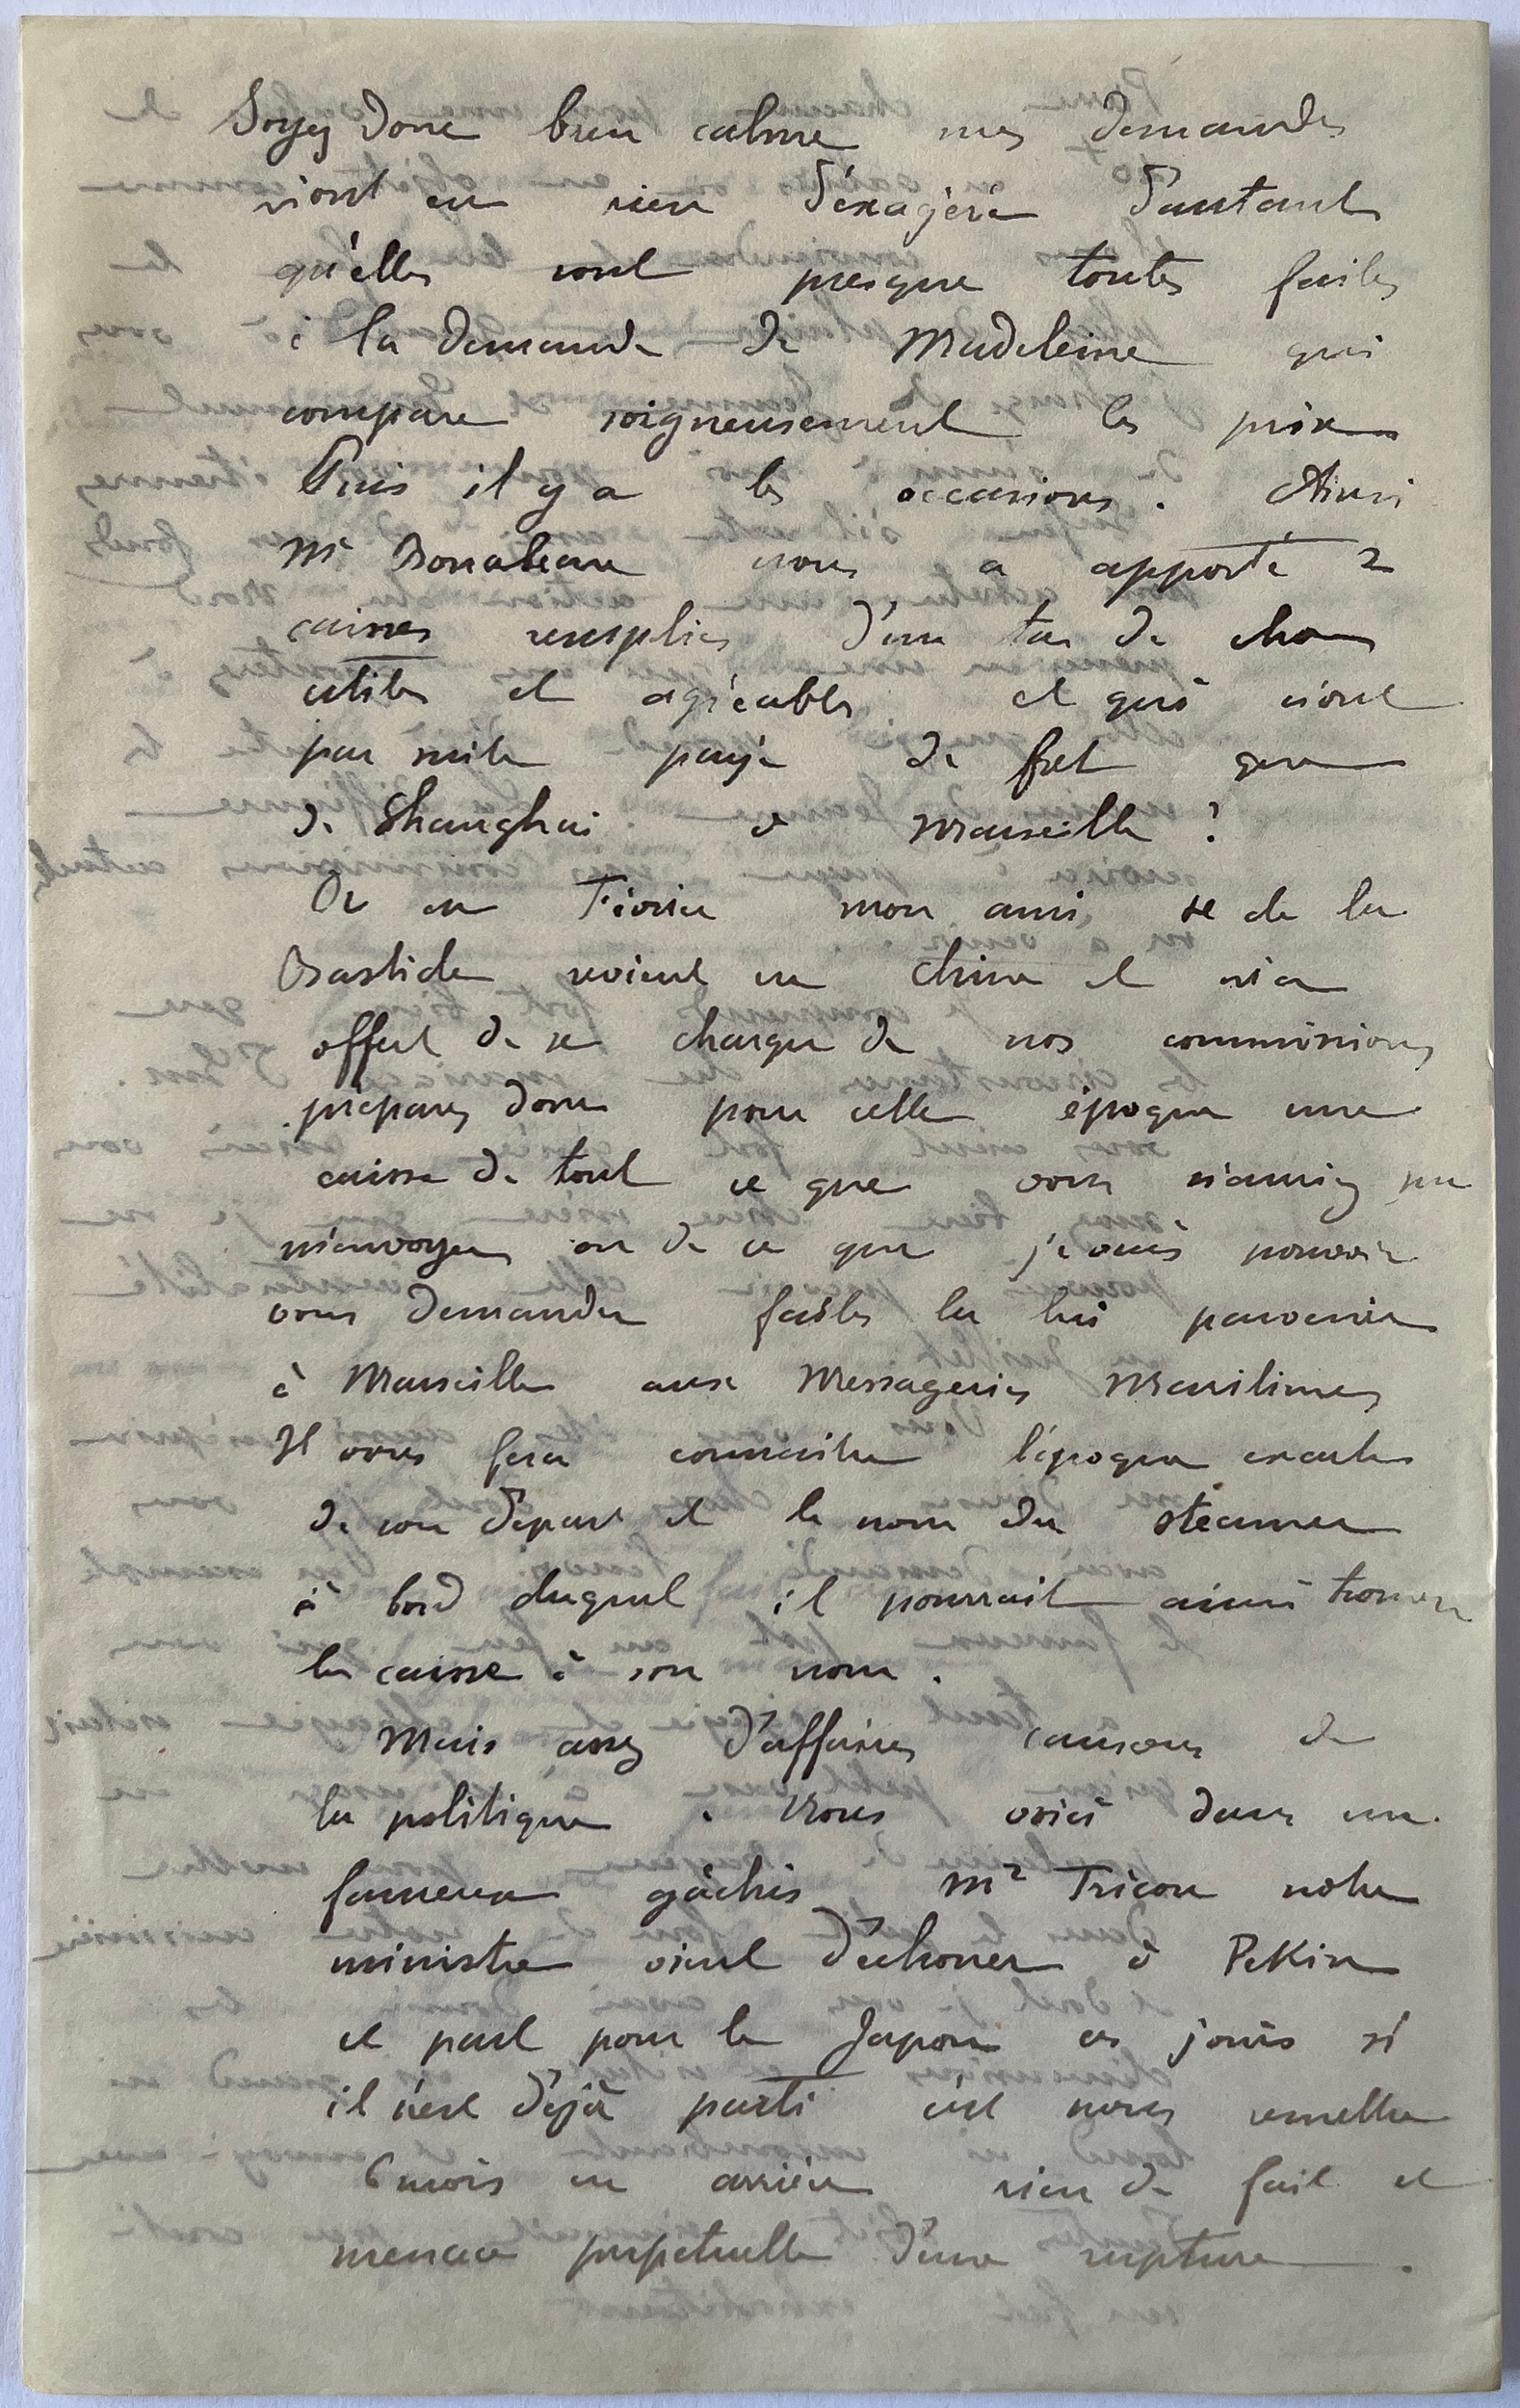 Soyez donc bien calme mes demandes
n'ont en rien d'exagéré d'autant
qu'elles sont presque toutes faites
à la demande de Madeleine qui
compare soigneusement les prix
Puis il y a les occasions. Ainsi
Mr Bonabeau nous a apporté 2
caisses remplies d'un tas de choses
utiles et agréables et qui n'ont
par suite payé de fret que
de Shanghai à Marseille?
Or en Février mon ami de la
Bastide revient en Chine et m'a
offert de se charger de nos commissions
préparez donc pour cette époque une
caisse de tout ce que vous n'auriez pu
m'envoyer ou de ce que je vais pouvoir
vous demander faites la lui parvenir
à Marseille aux Messageries Maritimes
Il vous fera connaitre l'époque exacte
de son départ et le nom du steamer
à bord duquel il pourrait ainsi trouver
la caisse à son nom.
Mais assez d'affaires causons de
la politique. Nous voici dans un
fameux gâchis Mr Tricou notre
ministre vient d'échouer à Pekin
et part pour le Japon ces jours si
il n'est déjà parti c'est nous remettre
6 mois en arrière rien de fait et
menace perpetuelle d'une rupture.